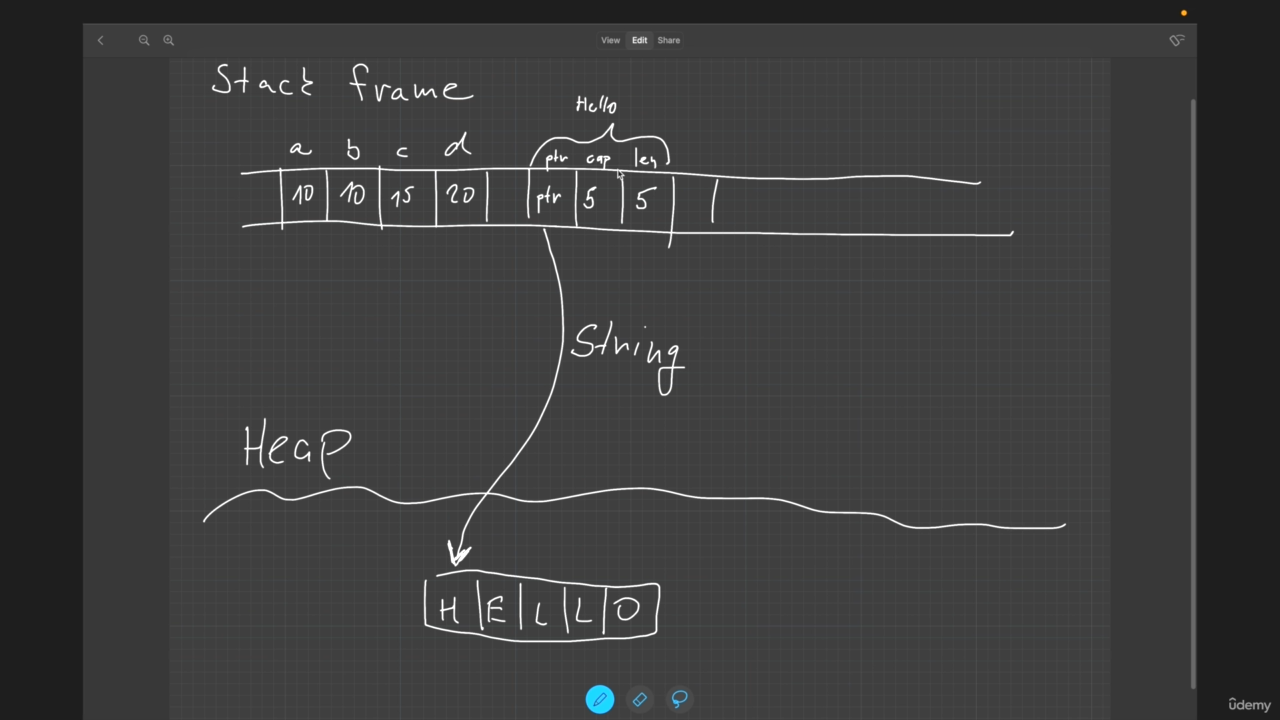 View Edit Share
Stack frame
Hello
a b c d ptr cap len
10 10 15 20 ptr 5 5
String
Heap
H E L L O
ûdemy